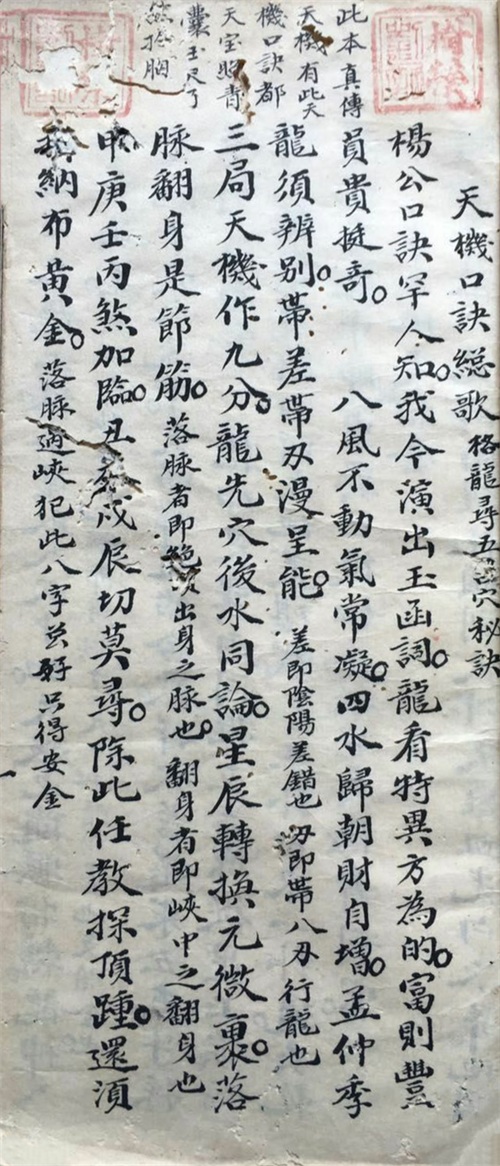 此本真傳
天機有此天
機口訣都
天宝照青
囊玉尺了
然于胸
天機口訣総歌 格龍尋五穴秘訣
楊公口訣罕人知。我今演出玉函詞。龍看特異方為的。富則豐
員貴挺奇。 八風不動氣常凝。四水歸朝財自增。孟仲季
龍須辨别。帶差帶刃漫呈能。 差即陰陽差錯也 刃即帶八刃行龍也
三局天機作九分。龍先穴後水同論。星辰轉換元微裏。落
脉翻身是節筋。落脉者即出身之脉也。翻身者即峽中之翻身也
甲庚壬丙煞加臨。丑戍辰切莫尋。除此任教探頂踵。還須
納布黃金。落脉過峽犯此八字並好只得安金